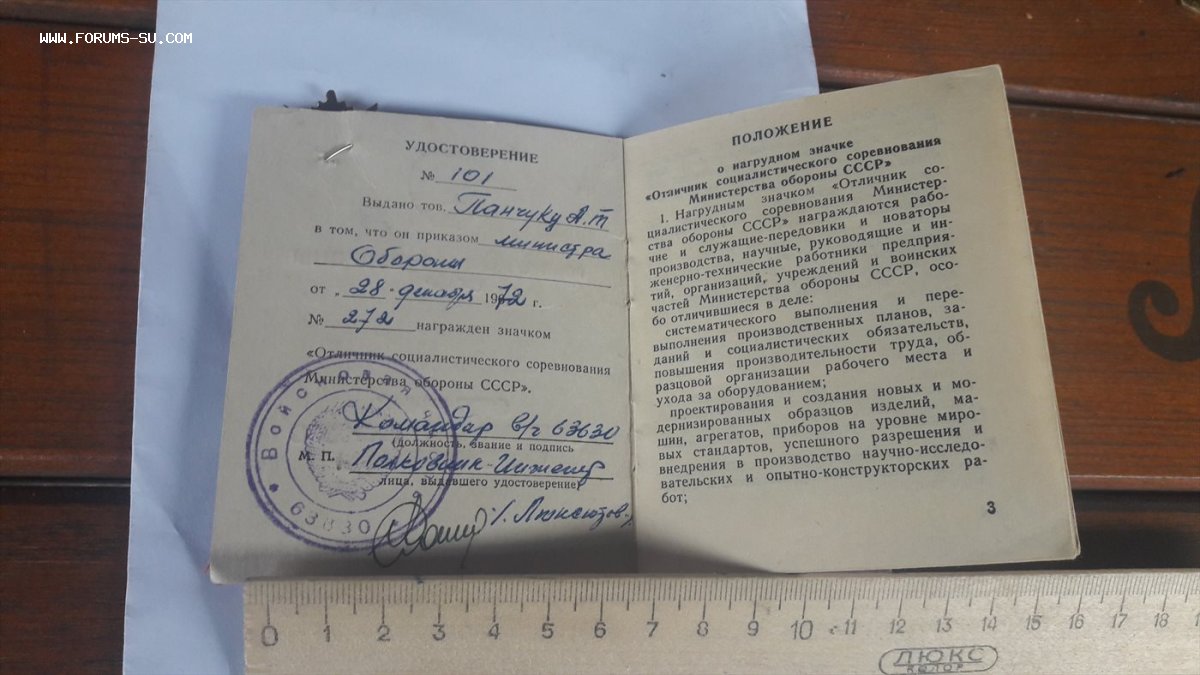 WWW.FORUMS-SU.COM
УДОСТОВЕРЕНИЕ
№ 101
Выдано тов. Панчуку А.Т
в том, что он приказом министра
Обороны
от „28" декабря 1972 г.
№ 272 награжден значком
«Отличник социалистического соревнования
Министерства обороны СССР».
Командир в/ч 63630
(должность, звание и подпись
М. П. Полковник-Инженер
лица, выдавшего удостоверение)
Войсковая
63830
ПОЛОЖЕНИЕ
о нагрудном значке
«Отличник социалистического соревнования
Министерства обороны СССР»
1. Нагрудным значком «Отличник со-
циалистического соревнования Министер-
ства обороны СССР» награждаются рабо-
чие и служащие-передовики и новаторы
производства, научные, руководящие и ин-
женерно-технические работники предприя-
тий, организаций, учреждений и воинских
частей Министерства обороны СССР, осо-
бо отличившиеся в деле:
систематического выполнения и пере-
выполнения производственных планов, за-
даний и социалистических обязательств,
повышения производительности труда, об-
разцовой организации рабочего места и
ухода за оборудованием;
проектирования и создания новых и мо-
дернизированных образцов изделий, ма-
шин, агрегатов, приборов на уровне миро-
вых стандартов, успешного разрешения и
внедрения в производство научно-исследо-
вательских и опытно-конструкторских ра-
бот;
3
0 1 2 3 4 5 6 7 8 9 10 11 12 13 14 15 16 17 18
ЛЮКС
КОЛОР